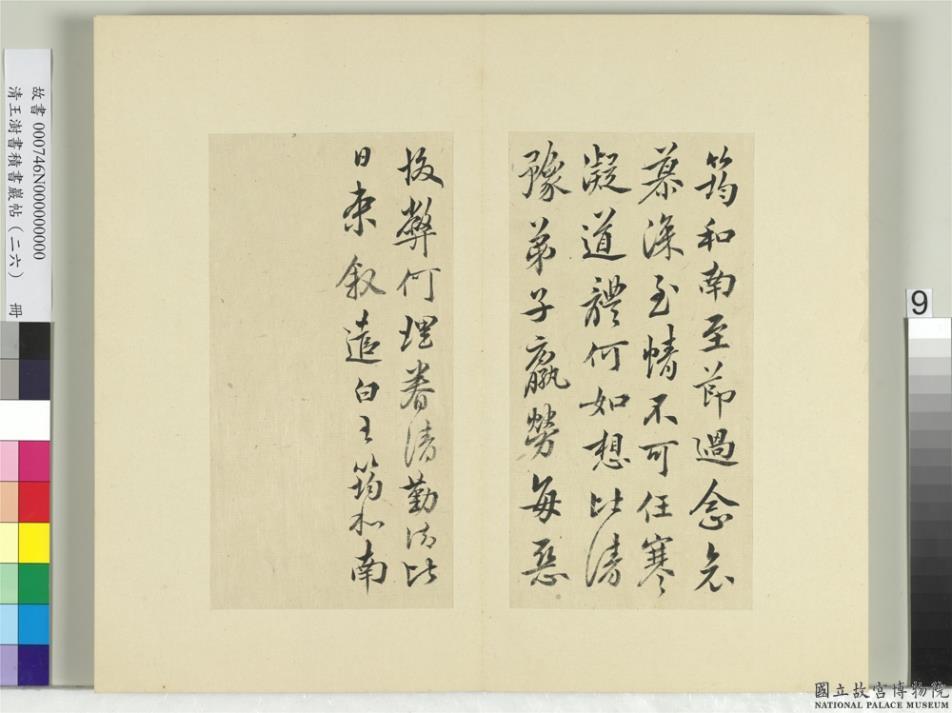 筠和南至節過念念
慕深至情不可任寒
凝道體何如想比清
豫弟子羸勞每惡
投弊何理眷清勤比
日來敘遣白王筠和南
故書 000746N000000000
清王澍書積書巖帖(二六) 冊
9
國立故宮博物院
NATIONAL PALACE MUSEUM